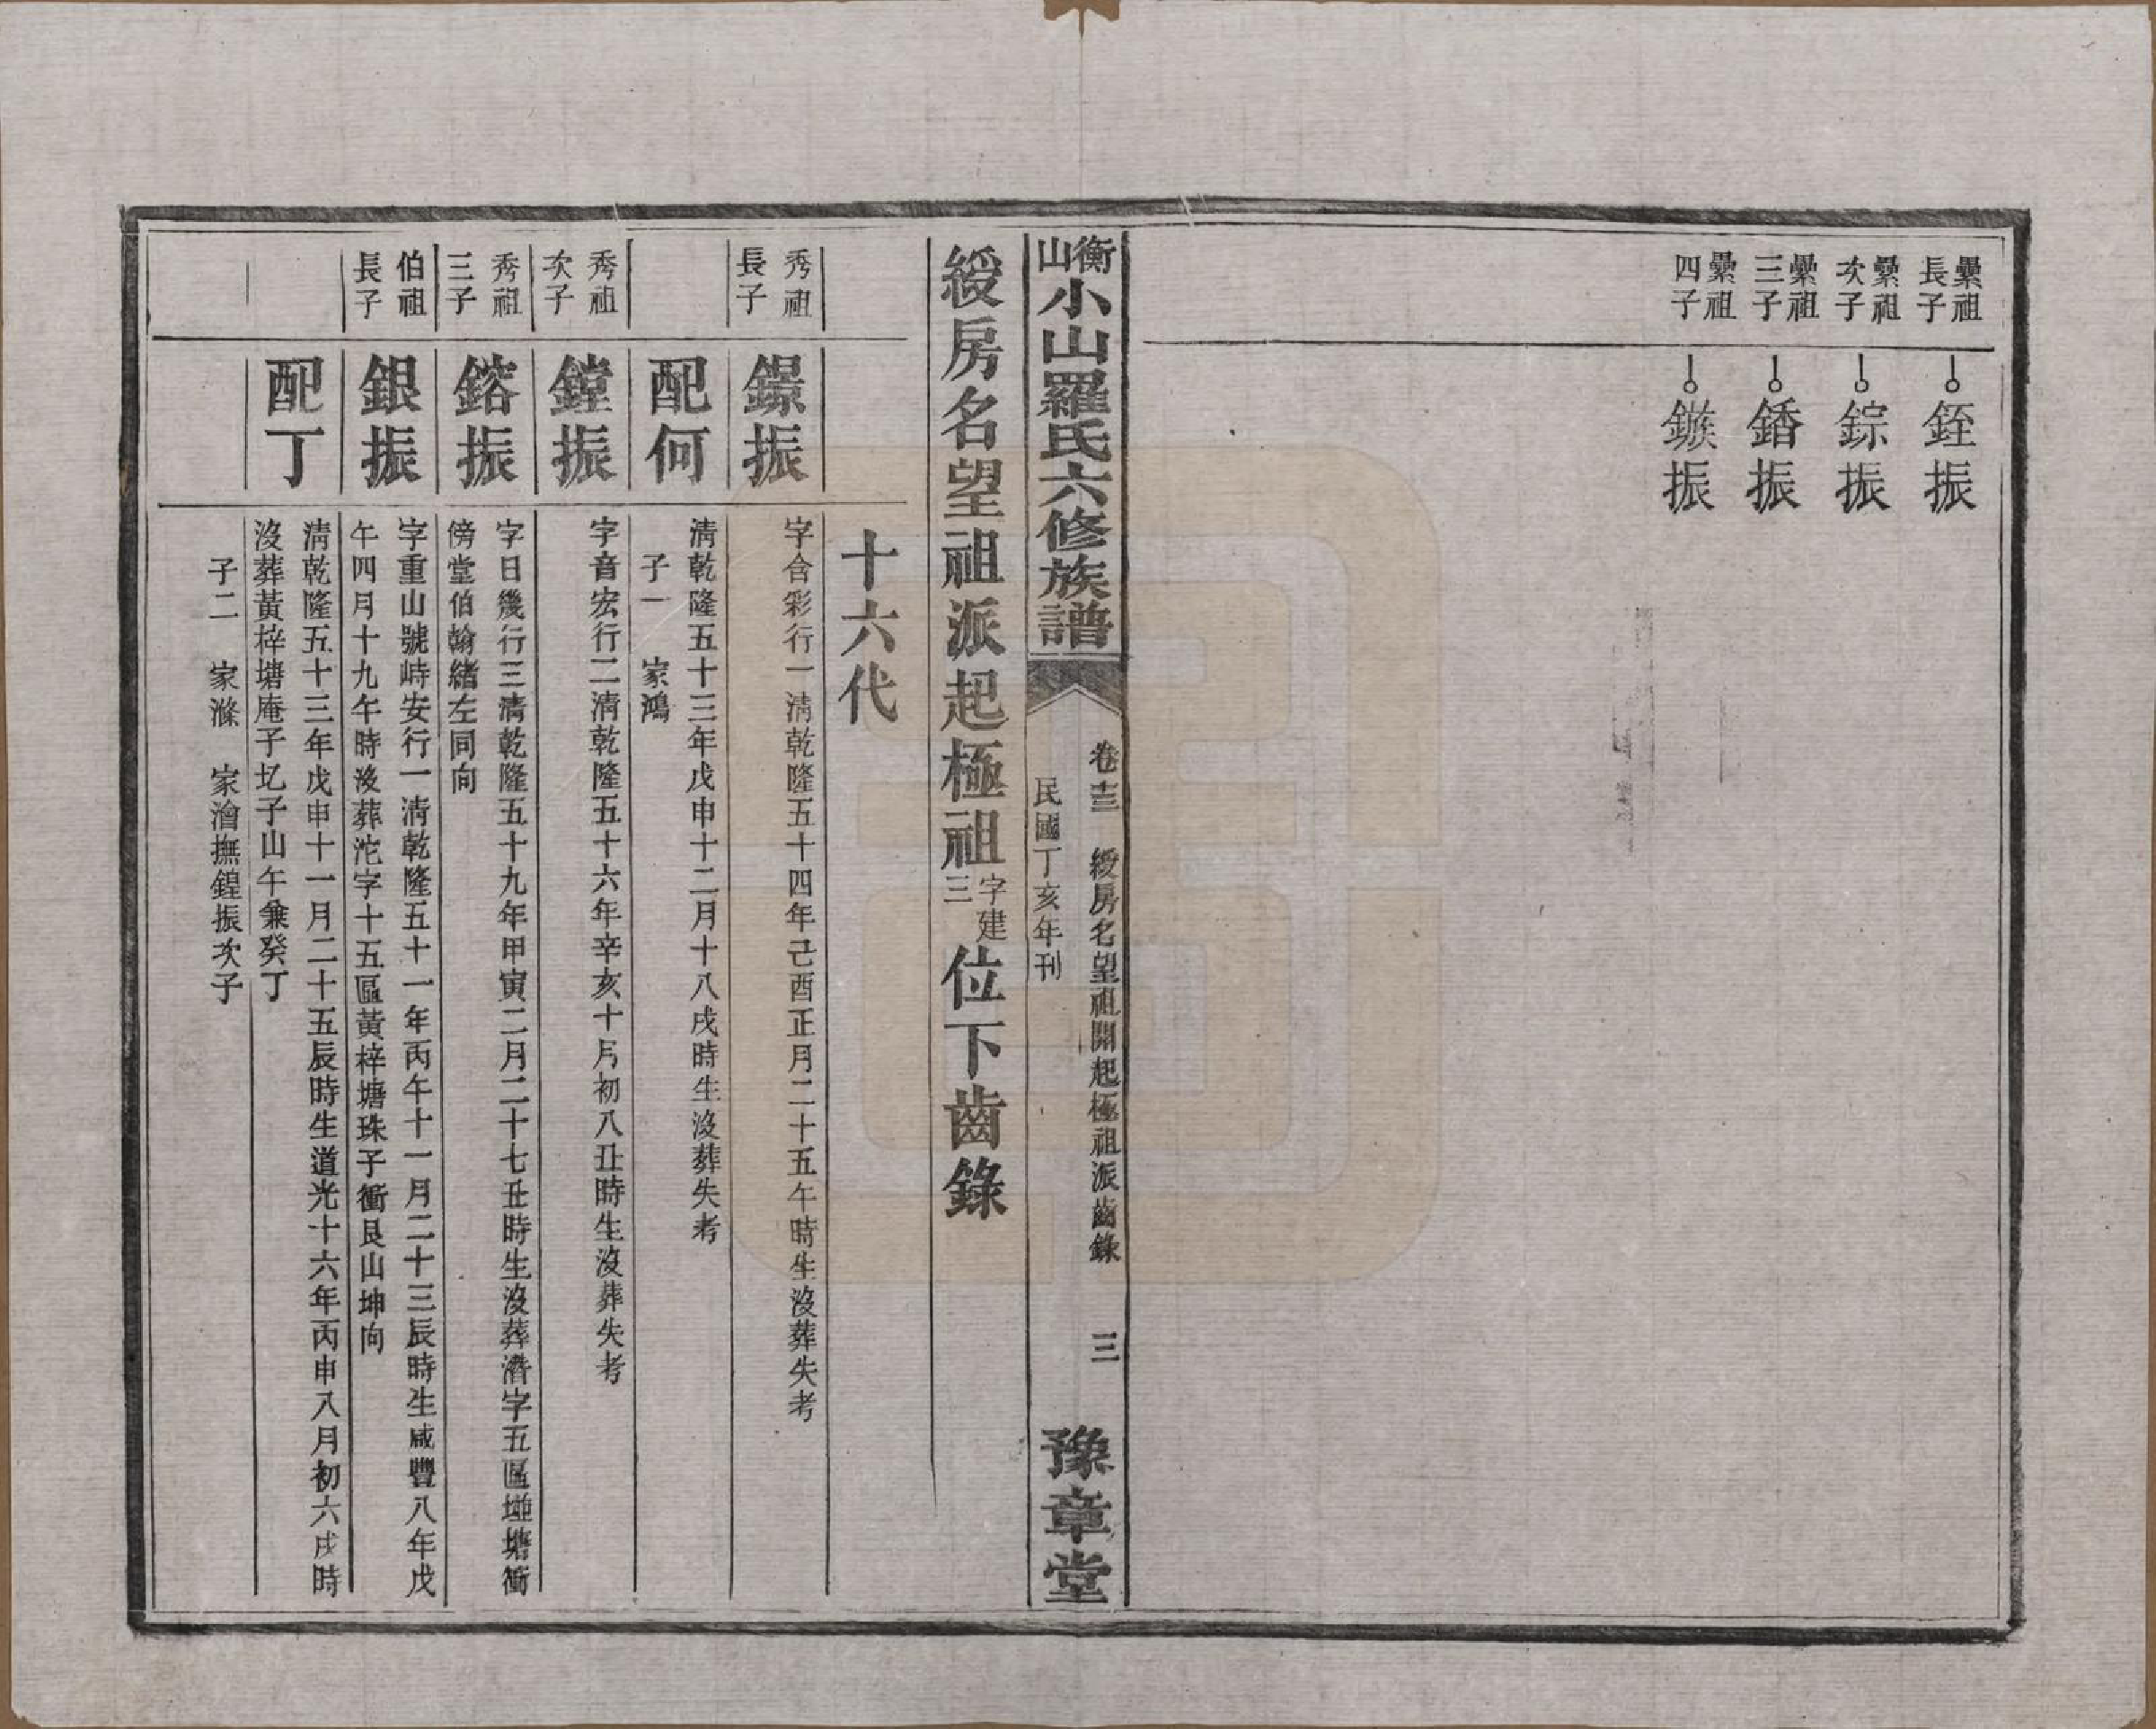 纍祖
長子
銍振
纍祖
次子
錝振
纍祖
三子
鍤振
纍祖
四子
鏃振
衡山小山羅氏六修族譜
卷十三 綬房名望祖開起極祖派齒錄 三
民國丁亥年刊
豫章堂
綬房名望祖派起極祖字建三位下齒錄
十六代
秀祖
長子
鐛振
字含彩行一清乾隆五十四年己酉正月二十五午時生沒葬失考
配何
清乾隆五十三年戊申十二月十八戌時生沒葬失考
子一 家鴻
秀祖
次子
鏜振
字音宏行二清乾隆五十六年辛亥十月初八丑時生沒葬失考
秀祖
三子
鎔振
字日幾行三清乾隆五十九年甲寅二月二十七丑時生沒葬潛字五區塘衝
傍堂伯翰緒左同向
伯祖
長子
銀振
字重山號峙安行一清乾隆五十一年丙午十一月二十三辰時生咸豐八年戊
午四月十九午時沒葬沱字十五區黃梓塘珠子衝艮山坤向
配丁
清乾隆五十三年戊申十一月二十五辰時生道光十六年丙申八月初六戌時
沒葬黃梓塘庵子圪子山午兼癸丁
子二 家滌 家澮撫鍠振次子